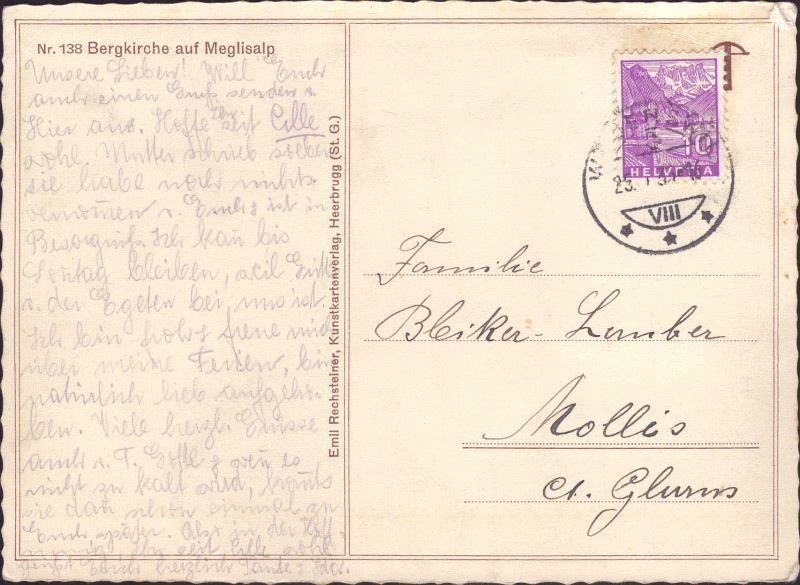 Nr. 138 Bergkirche auf Meglisalp
Unsere Lieben! Will Euch
auch einen Gruß senden v.
Hier aus. Hoffe Ihr seit Alle
wohl. Mutter schrieb soeben
sie habe noch nichts
vernommen v. Euch & ist in
Besorgniß. Ich kan bis
Sontag bleiben, weil
v. der bei uns ist.
Ich bin froh & freue mich
über meine Ferien, bin
natürlich lieb aufgeho-
ben. Viele herzl. Grüsse
auch v. T. & wen es
nicht zu kalt wird,
sie dan schon einmal zu
Euch später. Also in der Hoff-
nung Ihr seit Alle wohl
grüßt Euch herzlich Tante
Emil Rechsteiner, Kunstkartenverlag, Heerbrugg (St. G.)
10
HELVETIA
VIII
Familie
Bleiker-Lauber
Mollis
Ct. Glarus